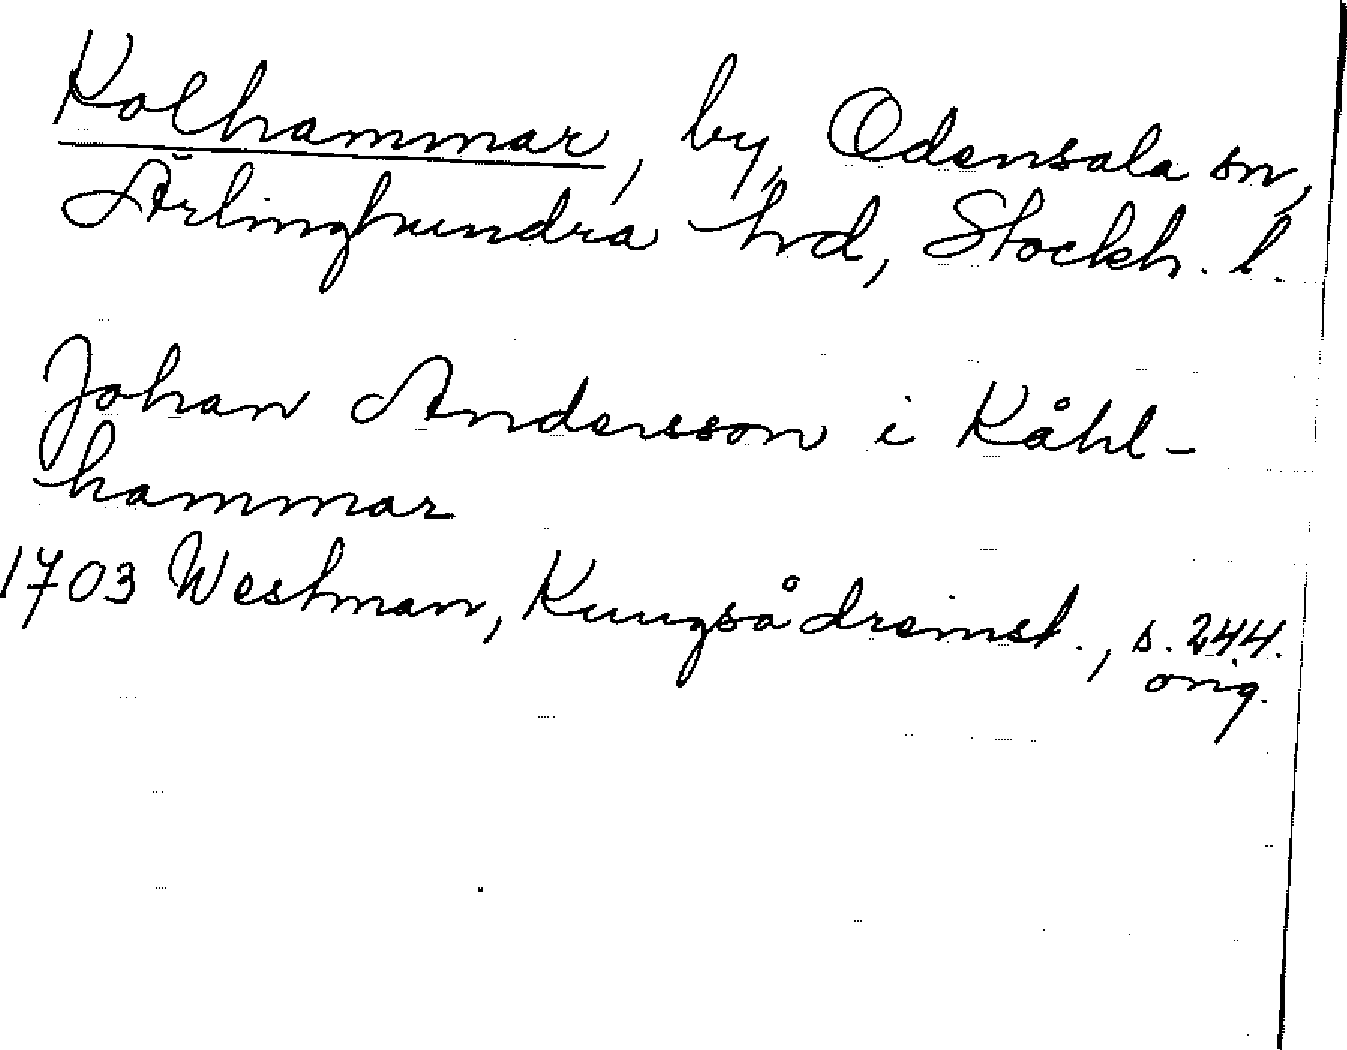 Kolhammar, by, Odensala sn,
Ärlinghundra hd, Stockh. l.
Johan Andersson i Kåhl-
hammar
1703 Westman, Kungsådremst., s. 244.
orig.